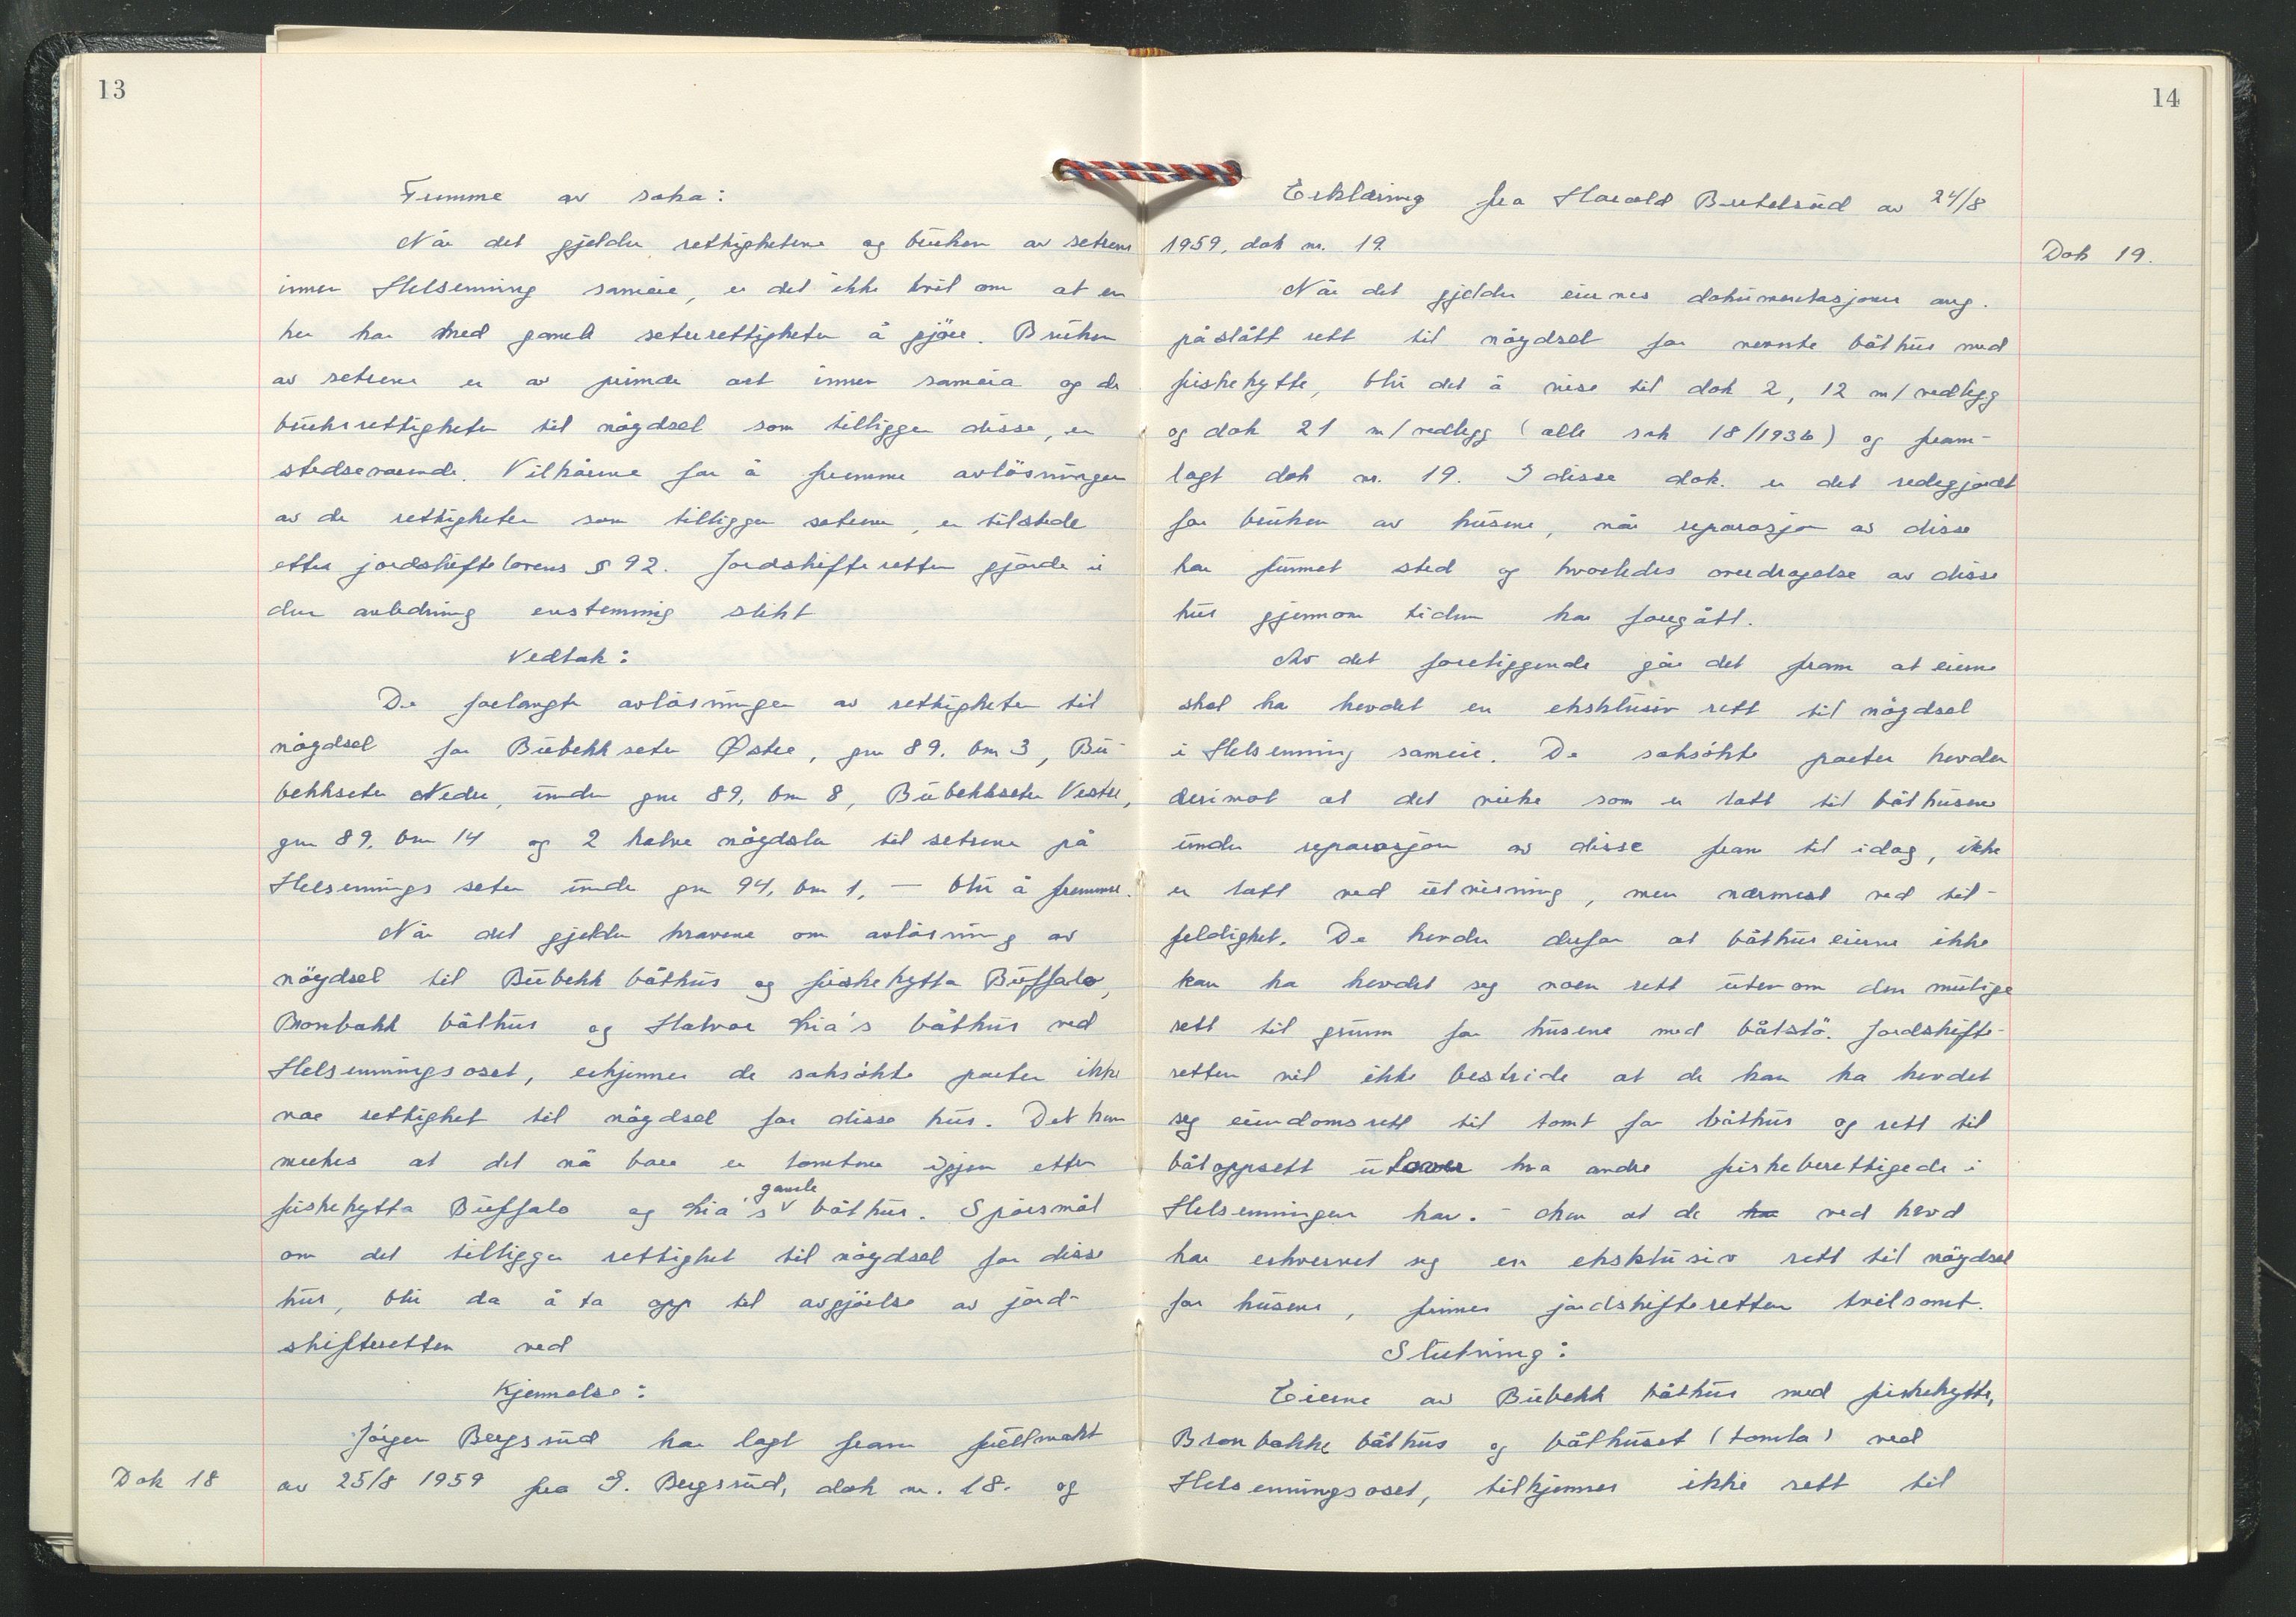 13
Fremme av saka:
Når det gjelder rettighetene og bruken av setrene
innen Helsenning sameie, er det ikke tvil om at en
her har med gamle seterrettigheter å gjöre. Bruken
av setrene er av primær art innen sameia og de
bruksrettigheter til nöydsel som tilligger disse, er
stedsevarende. Vilkårene for å fremme avlösningen
av de rettigheter som tilligger setrene, er tilstede
etter jordskiftelovens § 92. Jordskifteretten gjorde i
den anledning enstemmig slikt
Vedtak:
De forlangte avlösninger av rettigheter til
nöydsel for Bubekkseter Østre, gnr 89, bnr 3, Bu-
bekkseter Nedre, under gnr 89, bnr 8, Bubekkseter Vestre,
gnr 89, bnr 14 og 2 halve nöydsler til setrene på
Helsennings seter under gnr 94, bnr 1, — blir å fremme.
Når det gjelder kravene om avlösning av
nöydsel til Bubekk båthus og fiskehytta Buffalo,
Bronbakk båthus og Halvor Lia's båthus ved
Helsenningsoset, erkjenner de saksökte parter ikke
noe rettighet til nöydsel for disse hus. Det kan
merkes at det nå bare er tomtene igjen etter
fiskehytta Buffalo og Lia's gamle båthus. Spörsmål
om det tilligger rettighet til nöydsel for disse
hus, blir da å ta opp til avgjörelse av jord-
skifteretten ved
Kjennelse:
Jörgen Bergsrud har lagt fram fullmakt
Dok 18
av 25/8 1959 fra G. Bergsrud, dok nr. 18. og
14
Erklæring fra Harald Bertelsrud av 24/8
1959, dok nr. 19
Dok 19.
Når det gjelder eiernes dokumentasjoner ang.
påstått rett til nöydsel for nevnte båthus med
fiskehytte, blir det å vise til dok 2, 12 m/vedlegg
og dok 21 m/vedlegg (alle sak 18/1936) og fram-
lagt dok nr. 19. I disse dok. er det redegjort
for bruken av husene, når reparasjon av disse
har funnet sted og hvorledes overdragelse av disse
hus gjennom tiden har foregått.
Av det foreliggende går det fram at eierne
skal ha hevdet en eksklusiv rett til nöydsel
i Helsenning sameie. De saksökte parter hevder
derimot at det virke som er tatt til båthusene
under reparasjon av disse fram til idag, ikke
er tatt ved utvisning, men nærmest ved til-
feldighet. De hevder derfor at båthuseierne ikke
kan ha hevdet seg noen rett utenom den mulige
rett til grunn for husene med båtstö. Jordskifte-
retten vil ikke bestride at de kan ha hevdet
seg eiendomsrett til tomt for båthus og rett til
båtoppsett utover hva andre fiskeberettigede i
Helsenningen har. - Men at de ha ved hevd
har erhvervet seg en eksklusiv rett til nöydsel
for husene, finner jordskifteretten tvilsomt.
Slutning:
Eierne av Bubekk båthus med fiskehytte,
Bronbakke båthus og båthuset (tomta) ved
Helsenningsoset, tilkjennes ikke rett til